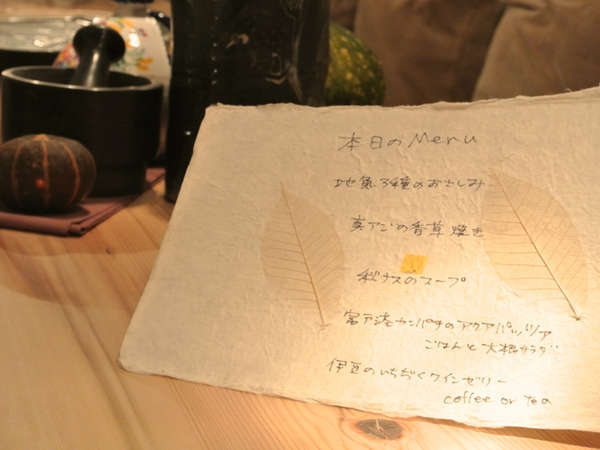 本日のMenu
地魚3種のおさしみ
真アジの香草焼き
秋ナスのスープ
宮戸港カンパチのアクアパッツァ
ごはんと大根サラダ
伊豆のいちぢくワインゼリー
coffee or Tea